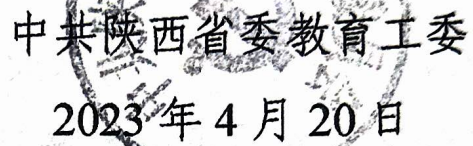 中共陕西省委教育工委
2023年4月20日